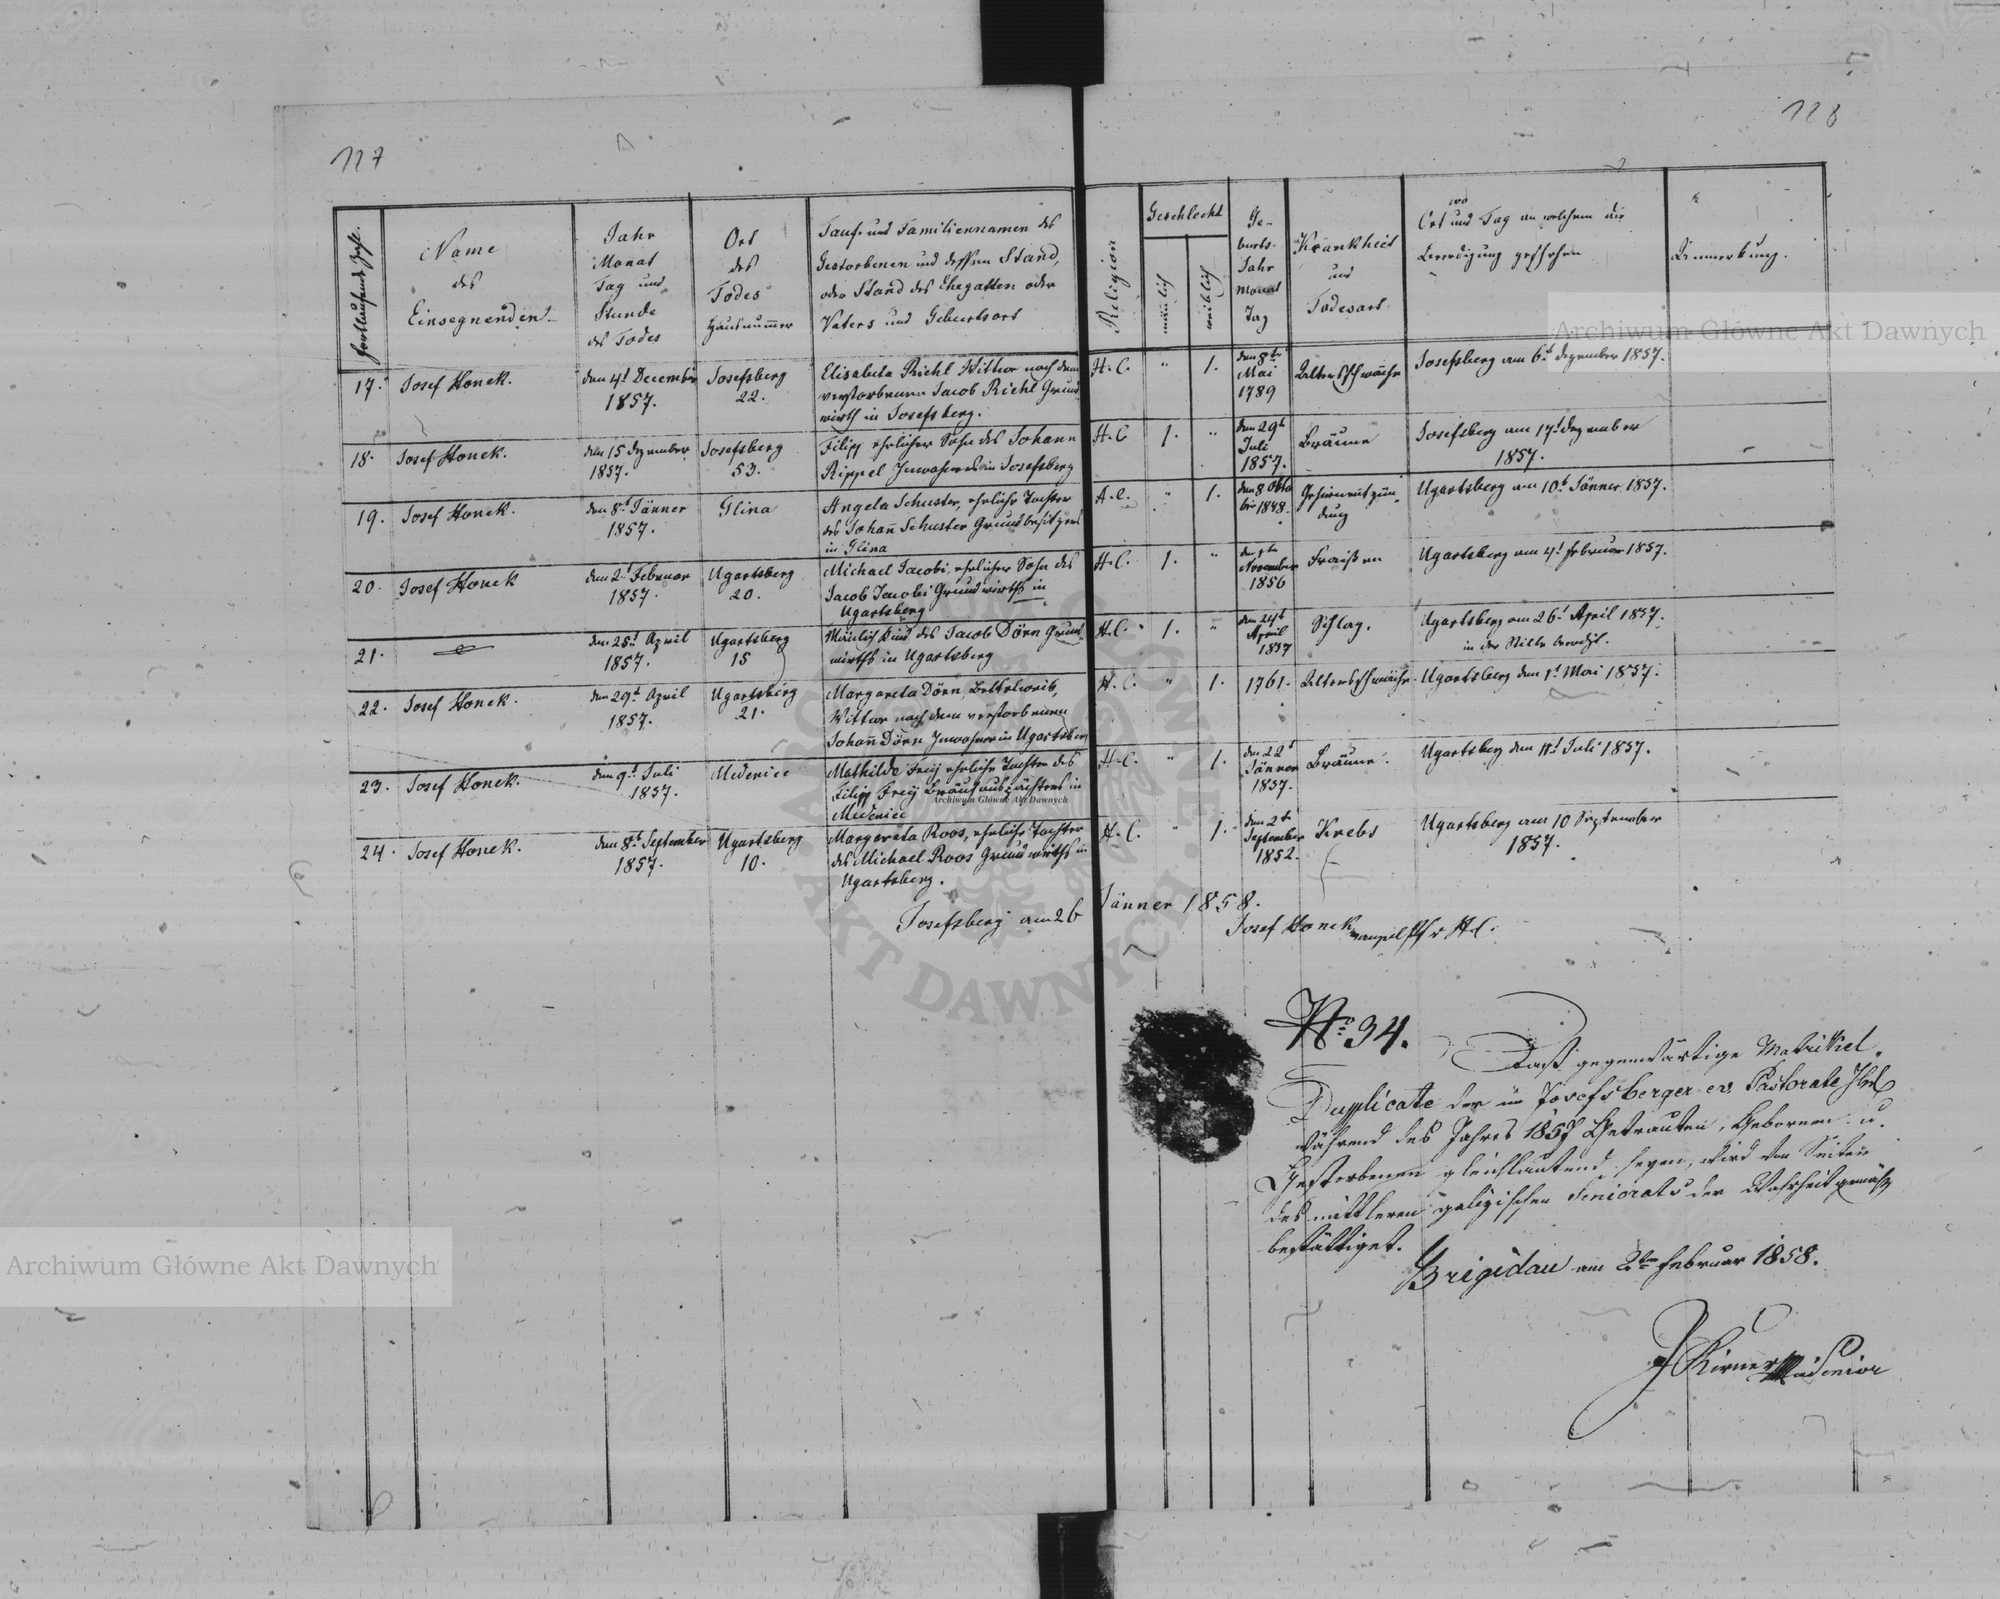 117
118
fortlaufende Zahl.
Name
des
Einsegnenden
Jahr
Monat
Tag und
Stunde
des Todes
Ort
des
Todes
Hausnummer
Tauf- und Familiennamen des
Gestorbenen und dessen Stand,
oder Stand des Ehegatten oder
Vaters und Geburtsort
Religion
Geschlecht
männlich
weiblich
Ge-
burts-
Jahr
Monat
Tag
Krankheit
und
Todesart
wo
Ort und Tag an welchem die
Beerdigung geschehen
Anmerkung.
17. Josef Honek. den 4t December Josefsberg Elisabeta Richl Wittwe nach dem H. C. " 1. den 8te Altersschwäche Josefsberg am 6t Dezember 1857.
1857. 22. verstorbenen Jacob Richl Grund Mai
wirth in Josefsberg. 1789
18. Josef Honek. den 15 Dezember Josefsberg Filipp ehelicher Sohn des Johann H. C 1. " den 29t Bräune Josefsberg am 17t Dezember
1857. 53. Rippel Inwohners in Josefsberg Juli 1857.
1857.
19. Josef Honek. den 8t Jänner Glina Angela Schuster, eheliche Tochter A. C. " 1. den 8 Okto Gehirnentzün- Ugartsberg am 10t Jänner 1857.
1857. des Johann Schuster Grundbesitzers ber 1848. dung
in Glina
20. Josef Honek den 2t Februar Ugartsberg Michael Jacobi, ehelicher Sohn des H. C. 1. " November Fraisen Ugartsberg am 4t Februar 1857.
1857. 20. Jacob Jacobi Grundwirths in 1856
Ugartsberg
21. den 25t April Ugartsberg Männlich Kind des Jacob Dörn Grund- H. C. 1. " den 24t Schlag. Ugartsberg am 26t April 1857.
1857. 15 wirths in Ugartsberg April in der Stille beerdigt.
1857
22. Josef Honek. den 29t April Ugartsberg Margareta Dörn, Bettelweib, H. C. " 1. 1761. Altersschwäche. Ugartsberg den 1t Mai 1857.
1857. 21. Wittwe nach dem verstorbenen
Johann Dörn Inwohner in Ugartsberg
23. Josef Honek. den 9t Juli Medenice Mathilde Frey eheliche Tochter des H. C. " 1. den 22t Bräune. Ugartsberg den 11t Juli 1857.
1857. Filipp Frey Bräuhauspächters in Jänner
Medenice 1857.
24. Josef Honek. den 8t September Ugartsberg Margareta Roos, eheliche Tochter H. C. " 1. den 2t Krebs Ugartsberg am 10 September
1857. 10. des Michael Roos Grundwirths in September 1857.
Ugartsberg. 1852.
Josefsberg am 26 Jänner 1858.
Josef Honek
No 34.
Daß gegenwärtige Matrikel-
Duplicate der im Josefsberger ev. Pastorate
während des Jahres 1857 Getrauten, Gebornen u.
Gestorbenen gleichlautend seyen, wird von Seiten
des mittleren galizischen Seniorats der Wahrheit gemäß
bestättiget.
Brigidau am 2ten Februar 1858.
Senior
Archiwum Główne Akt Dawnych
Archiwum Główne Akt Dawnych
Archiwum Główne Akt Dawnych